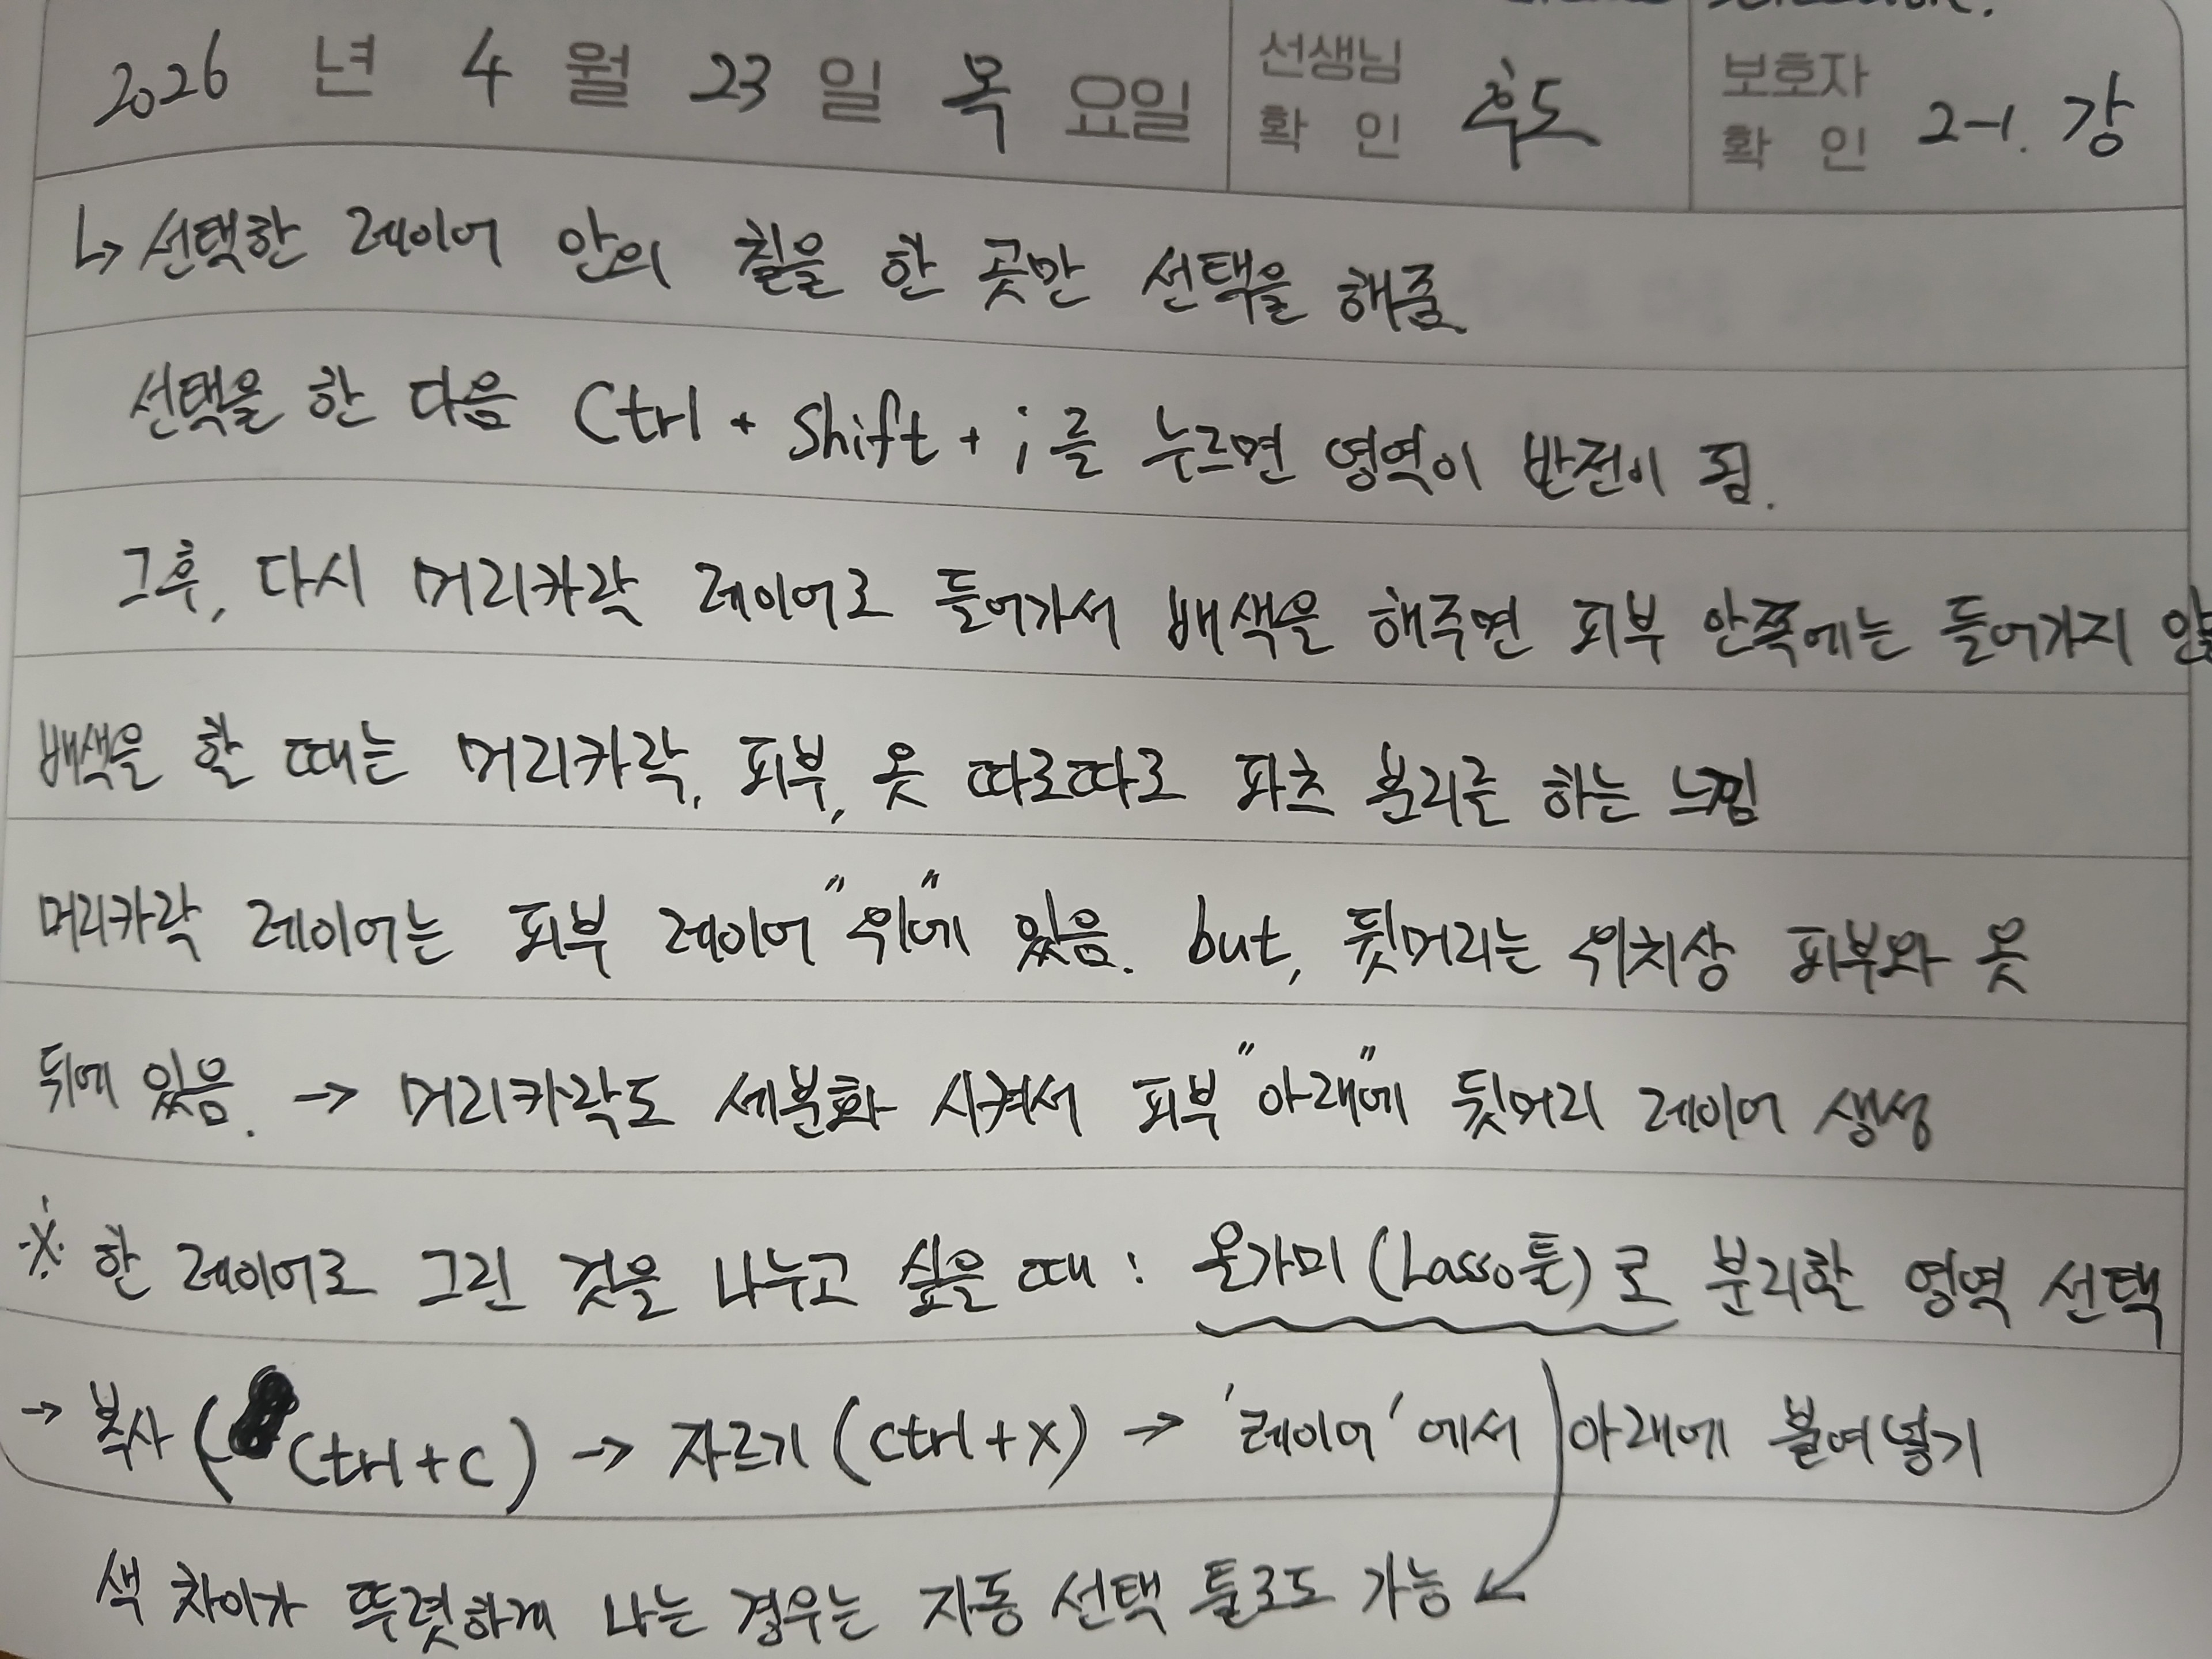 2026 년 4 월 23 일 목 요일 선생님 확 인 후도 보호자 확 인 2-1. 강
↳ 선택한 레이어 안의 칠을 한 곳만 선택을 해줌
선택을 한 다음 Ctrl + Shift + i 를 누르면 영역이 반전이 됨.
그후, 다시 머리카락 레이어로 들어가서 배색을 해주면 피부 안쪽에는 들어가지
배색을 할 때는 머리카락, 피부, 옷 따로따로 파츠 분리를 하는 느낌
머리카락 레이어는 피부 레이어 "위에" 있음. but, 뒷머리는 위치상 피부와 옷
뒤에 있음. → 머리카락도 세분화 시켜서 피부 "아래"에 뒷머리 레이어 생성
※ 한 레이어로 그린 것을 나누고 싶을 때 : 올가미 (Lasso툴)로 분리할 영역 선택
→ 복사 (Ctrl+C) → 자르기 (ctrl+x) → '레이어'에서 아래에 붙여넣기
색 차이가 뚜렷하게 나는 경우는 자동 선택 툴로도 가능